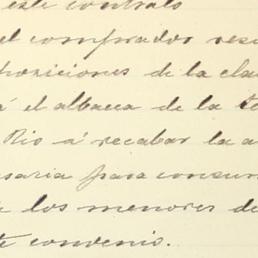 este contrato
el comprador res
posiciones de la cla
á el albacea de la te
Rio á recabar la a
saria para consu
los menores de
te convenio.